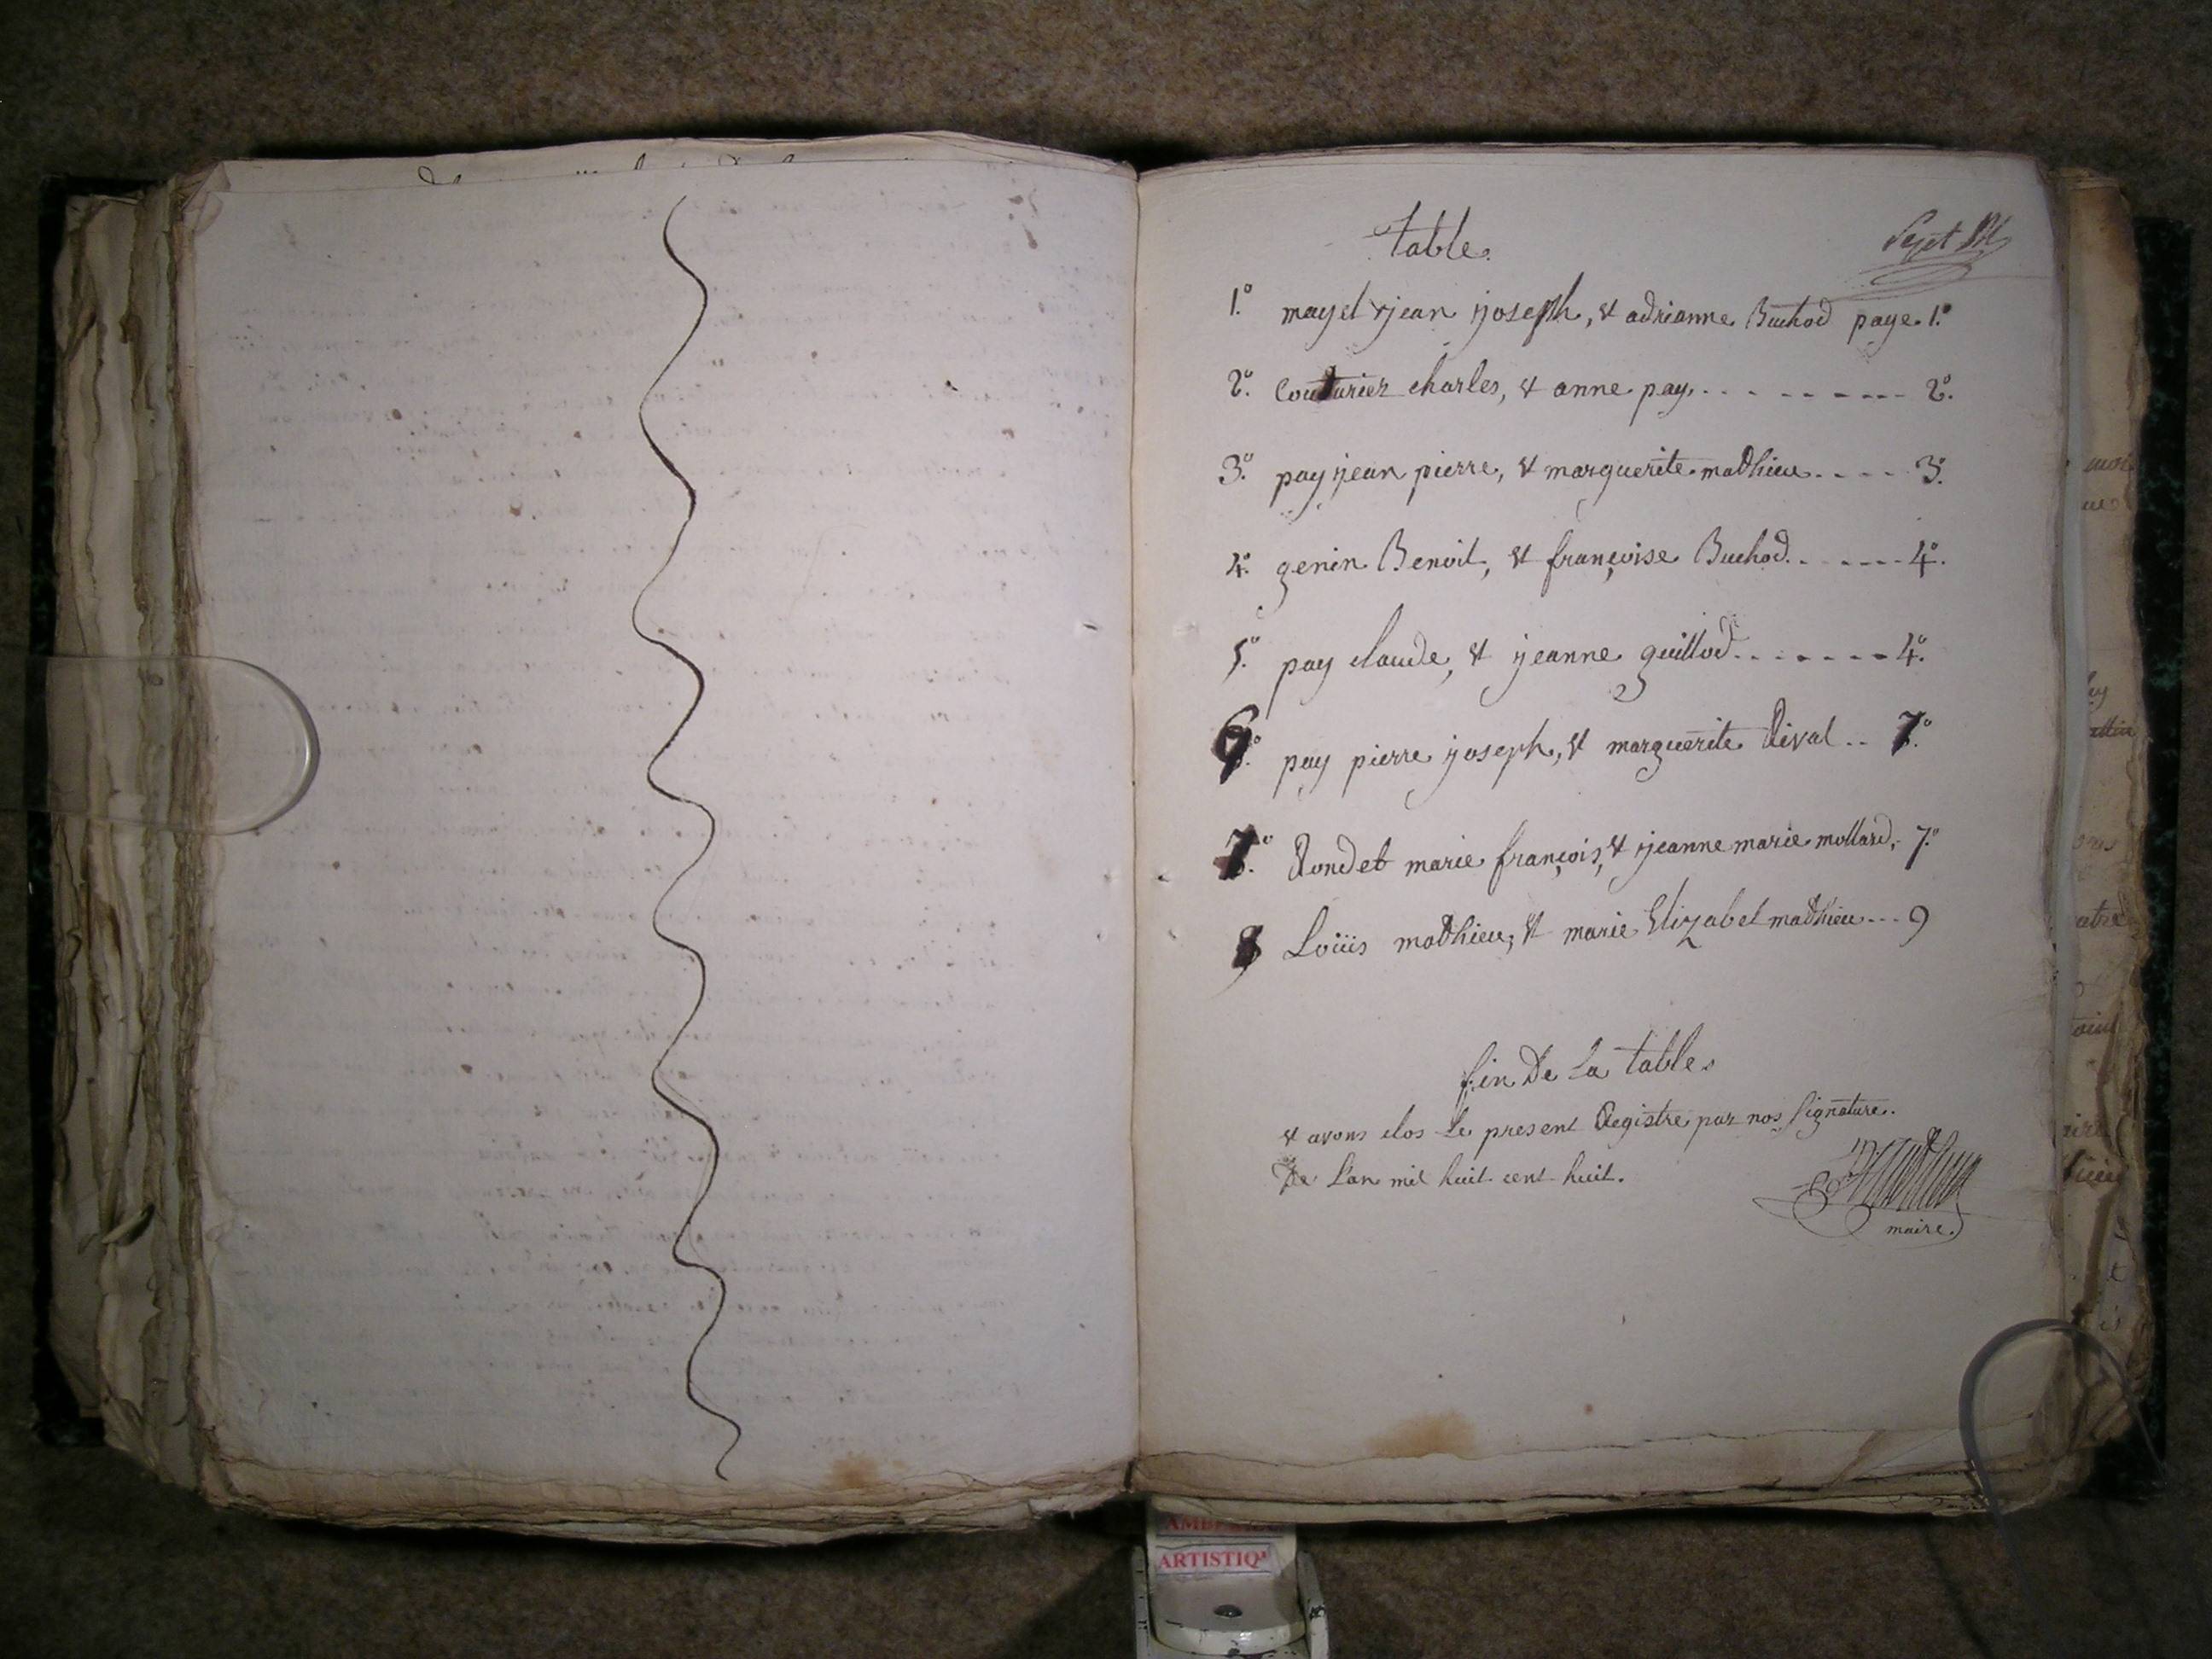 table.
1.° mayet jean joseph, & adrianne Buchod page. 1.°
2.° Couturier charles, & anne pay. . . . - - - - - - 2.°
3.° pay jean pierre, & marguerite mathieu. - - - 3.°
4.° genin Benoit, & françoise Buchod. . - - - - 4.°
5.° pay claude, & jeanne guillod. . . . . . . - 4.°
6.° pay pierre joseph, & marguerite Rival .. 7.°
7.° Rondet marie françois, & jeanne marie mollard, 7.°
8 Loüis mathieu, & marie Elizabet mathieu - - - 9
fin De La table.
& avons clos Le present Registre par nos Signature.
De L'an mil huit cent huit.
maire.
ARTISTIQ